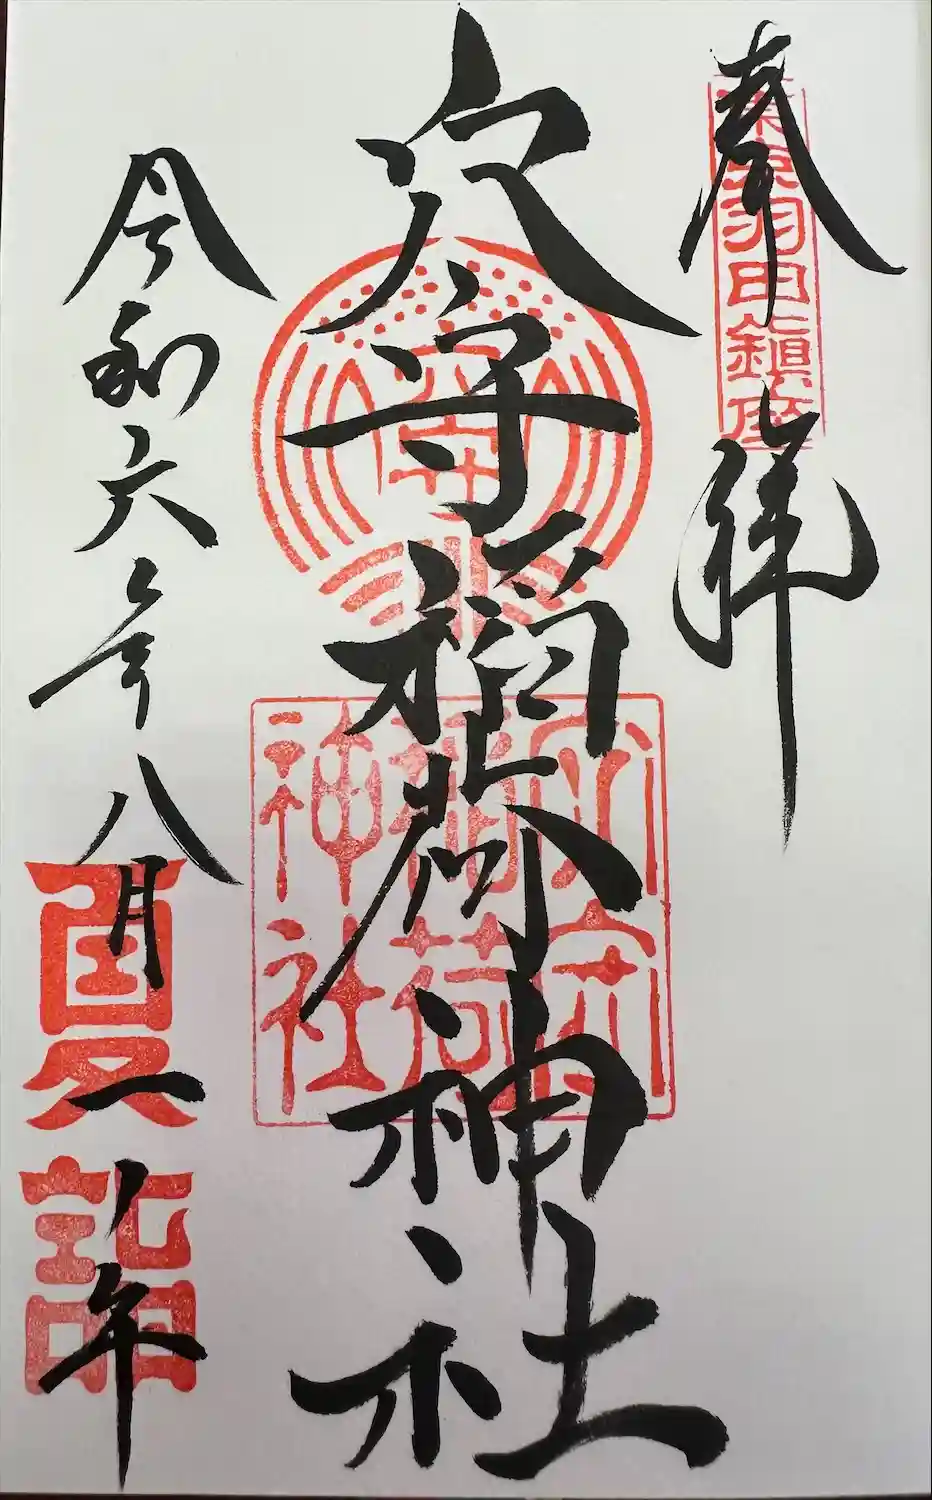 奉拝
東京羽田鎮座
穴守稲荷神社
穴守
穴守
稲荷
神社
令和六年八月一ノ午
夏詣